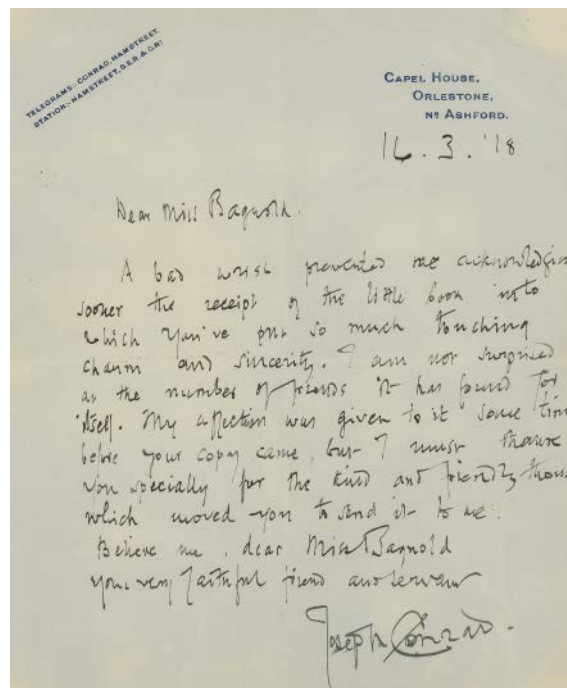 TELEGRAMS:- CONRAD, HAMSTREET.
STATION:- HAMSTREET, S.E.R. & C.R.
CAPEL HOUSE,
ORLESTONE,
NR ASHFORD.
16.3.'18
Dear Miss Bagnold.
A bad wrist prevented me acknowledgin
sooner the receipt of the little book into
which you've put so much touching
charm and sincerity. I am not surprised
at the number of friends it has found for
itself. My affection was given to it some tim
before your copy came, but I must thank
you specially for the kind and friendly thou
which moved you to send it to me.
Believe me, dear Miss Bagnold
your very faithful friend and servant
Joseph Conrad.